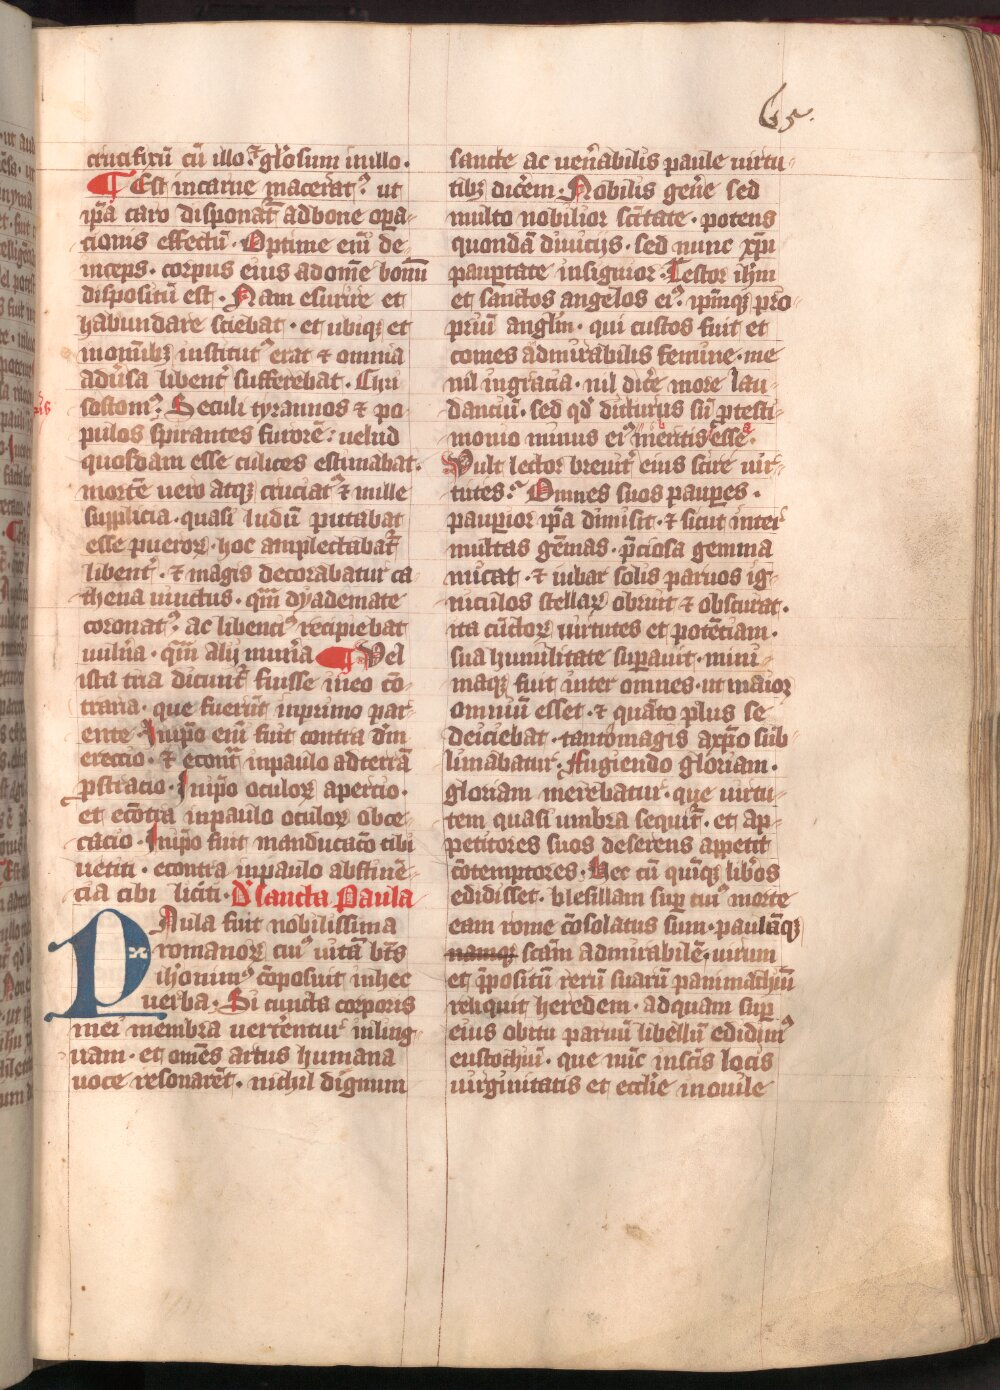 65.
crucifixū cū illo .⁊ gl'osum in illo.
¶ Est in carne macerat⁹ . ut
ip̄a caro disponat̄ ad bone op̄a-
cionis effectū . Optime eni᷒ de-
inceps . corpus eius ad om̄e bonū
dispositū est . Nam esurire et
habundare sciebat . et ubiqȝ et
in om̄ibȝ institut⁹ erat ⁊ omnia
adu̾sa libent̾ sufferebat . Cri
sostom⁹ . Seculi tyrannos ⁊ po-
pulos spirantes furorē : uelud
quosdam esse culices estimabat .
mortē uero atqȝ cruciat⁹ ⁊ mille
supplicia . quasi ludū putabat
esse pueroꝝ . hoc amplectabat̄
libent̾ . ⁊ magis decorabatur ca-
thena uinctus . qm̄ dyademate
coronat⁹ . ac libenci⁹ recipiebat
uuln̾a . qm̄ alij mun̾a ¶ Vel
ista tria dicunt̄ fuisse in eo cō-
traria . que fuerūt in primo par-
ente . In p̾o eni᷒ fuit contra dn̄m
ereccio . ⁊ econt̾ in paulo ad terrā
ꝓstracio . In p̾o oculoꝝ apercio .
et ecōtra in paulo oculoꝝ obce-
cacio . In p̾o fuit manducacō cibi
uetiti . econtra in paulo abstinē-
cia cibi liciti . D̾ sancta Paula
PAula fuit nobilissima
romanoꝝ cui⁹ uitā bt̄s
ih̾onim⁹ cōposuit in hec
uerba . Si cuncta corporis
mei membra uerterentur in ling-
uam . et om̄es artus humana
uoce resonarēt . nichil dignum
sancte ac uen̾abilis paule uirtu-
tibȝ dicerem . Nobilis gen̾e sed
multo nobilior sc̄itate . potens
quondā diuicijs . sed nunc xp̄i
paup̱tate insignior . Testor ih̄m
et sanctos angelos ei⁹ . ip̄mqȝ pro-
priū angl̄m . qui custos fuit et
comes admirabilis femine . me
nil in gracia . nil dic̾e more lau-
danciū . sed qd̾ dicturus sū ꝓ testi-
monio minus ei⁹ meritis esse .
Vult lector breuit̾ eius scire uir-
tutes .⁊ Omnes suos paup̱es .
paup̱ior ip̄a dimisit . ⁊ sicut inter
multas gēmas . p̄ciosa gemma
micat . ⁊ iubar solis paruos ig-
niculos stellaꝝ obruit ⁊ obscurat .
ita cūctoꝝ uirtutes et potēciam .
sua humilitate sup̱auit . mini-
maqȝ fuit inter omnes . ut maior
omniū esset . ⁊ quāto plus se
deiciebat . tanto magis a xp̄o sub-
limabatur . Fugiendo gloriam .
gloriam merebatur . que uirtu-
tem quasi umbra sequit̄ . et ap-
petitores suos deserens appetit
cōtemptores . Hec cū qui̅qȝ lib̾os
edidisset . blesillam sup̱ cui⁹ morte
eam rome cōsolatus sum . paulāqȝ
namqȝ scām admirabilē . uirum
et ꝓpositū rerū suarū pammachiū
reliquit heredem . ad quam sup̱
eius obitu paruū libellū edidim⁹
eustochiū . que nūc in scīs locis
uirginitatis et eccl̾ie monile